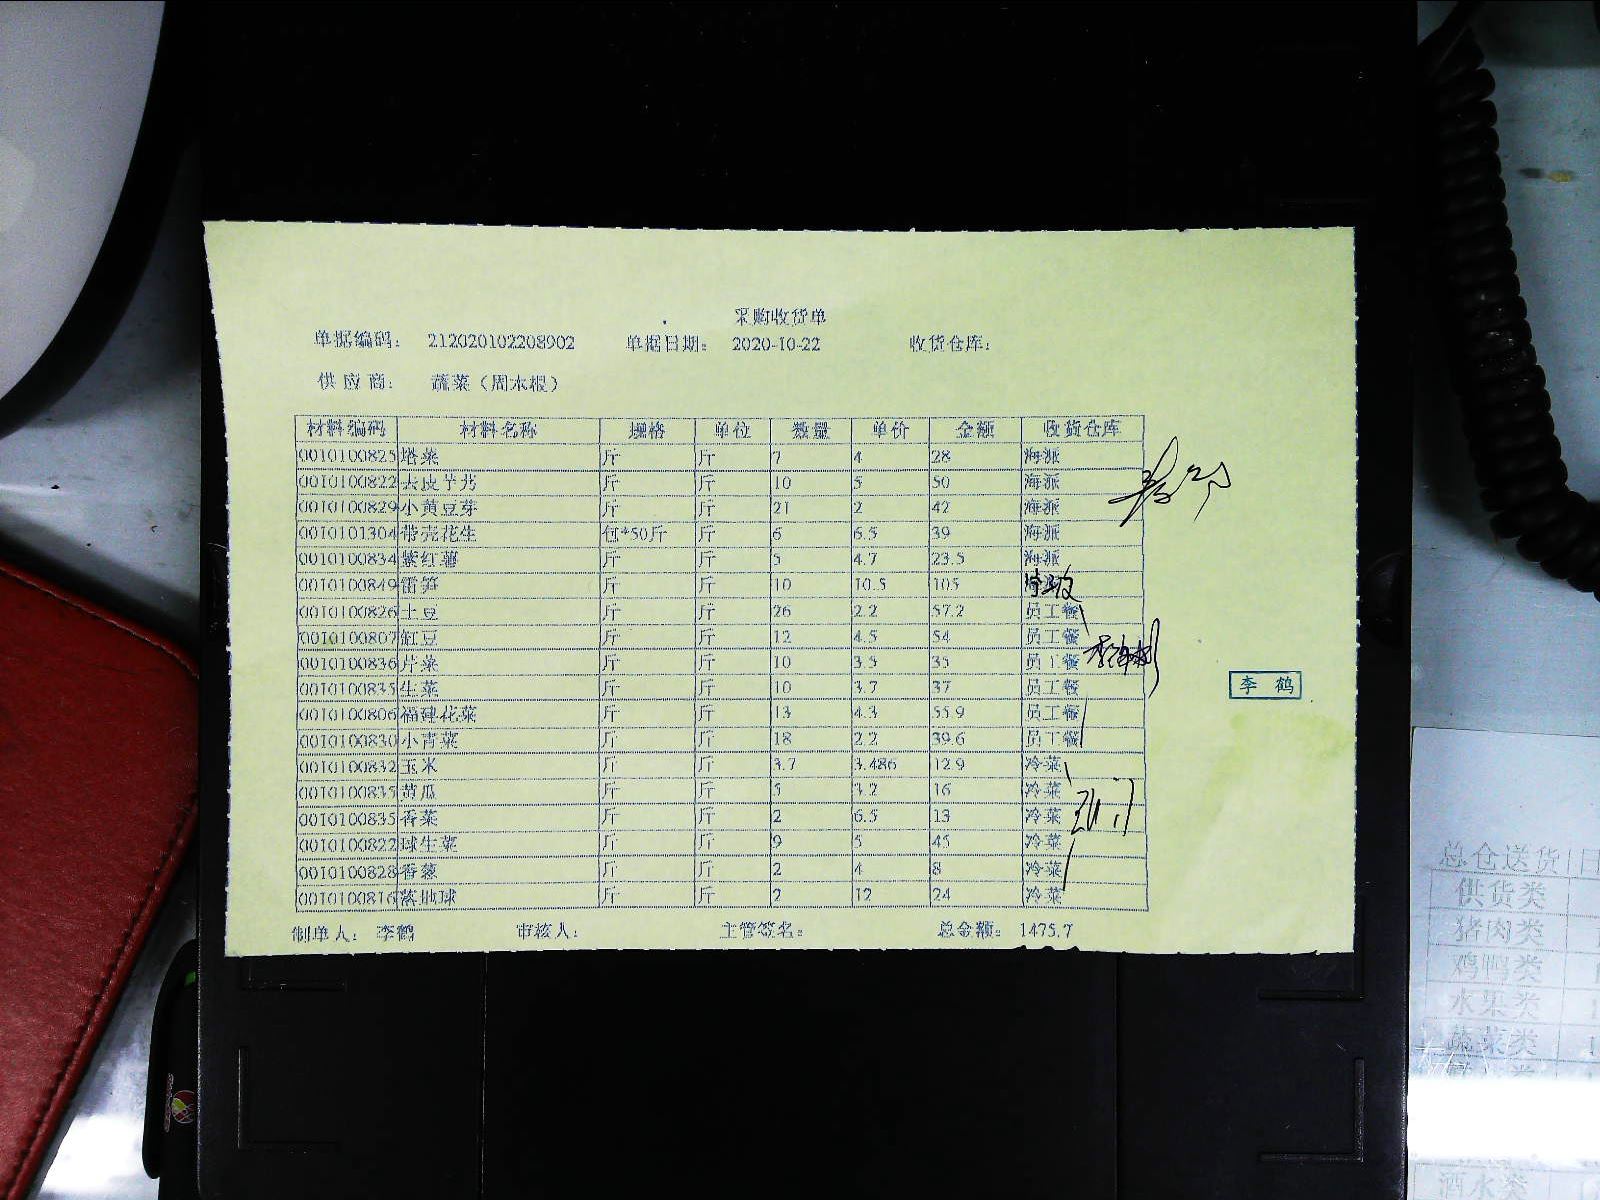 采购收货单
单据编码： 212020102208902 单据日期： 2020-10-22 收货仓库：
供应商： 蔬菜（周本根）
材料编码 材料名称 规格 单位 数量 单价 金额 收货仓库
0010100825 塔菜 斤 斤 7 4 28 海派
0010100822 去皮芋艿 斤 斤 10 5 50 海派
0010100829 小黄豆芽 斤 斤 21 2 42 海派
0010101304 带壳花生 包*50斤 斤 6 6.5 39 海派
0010100834 紫红薯 斤 斤 5 4.7 23.5 海派
0010100849 雷笋 斤 斤 10 10.5 105
0010100826 土豆 斤 斤 26 2.2 57.2 员工餐
0010100807 豇豆 斤 斤 12 4.5 54 员工餐
0010100836 芹菜 斤 斤 10 3.5 35 员工餐
0010100835 生菜 斤 斤 10 3.7 37 员工餐
李 鹤
0010100806 福建花菜 斤 斤 13 4.3 55.9 员工餐
0010100830 小青菜 斤 斤 18 2.2 39.6 员工餐
0010100832 玉米 斤 斤 3.7 3.486 12.9 冷菜
0010100835 黄瓜 斤 斤 5 3.2 16 冷菜
0010100835 香菜 斤 斤 2 6.5 13 冷菜
0010100822 球生菜 斤 斤 9 5 45 冷菜
0010100828 香葱 斤 斤 2 4 8 冷菜
0010100816 落地球 斤 斤 2 12 24 冷菜
制单人： 李鹤 审核人： 主管签名： 总金额： 1475.7
总仓送货
供货类
猪肉类
鸡鸭类
水果类
蔬菜类
酒水类